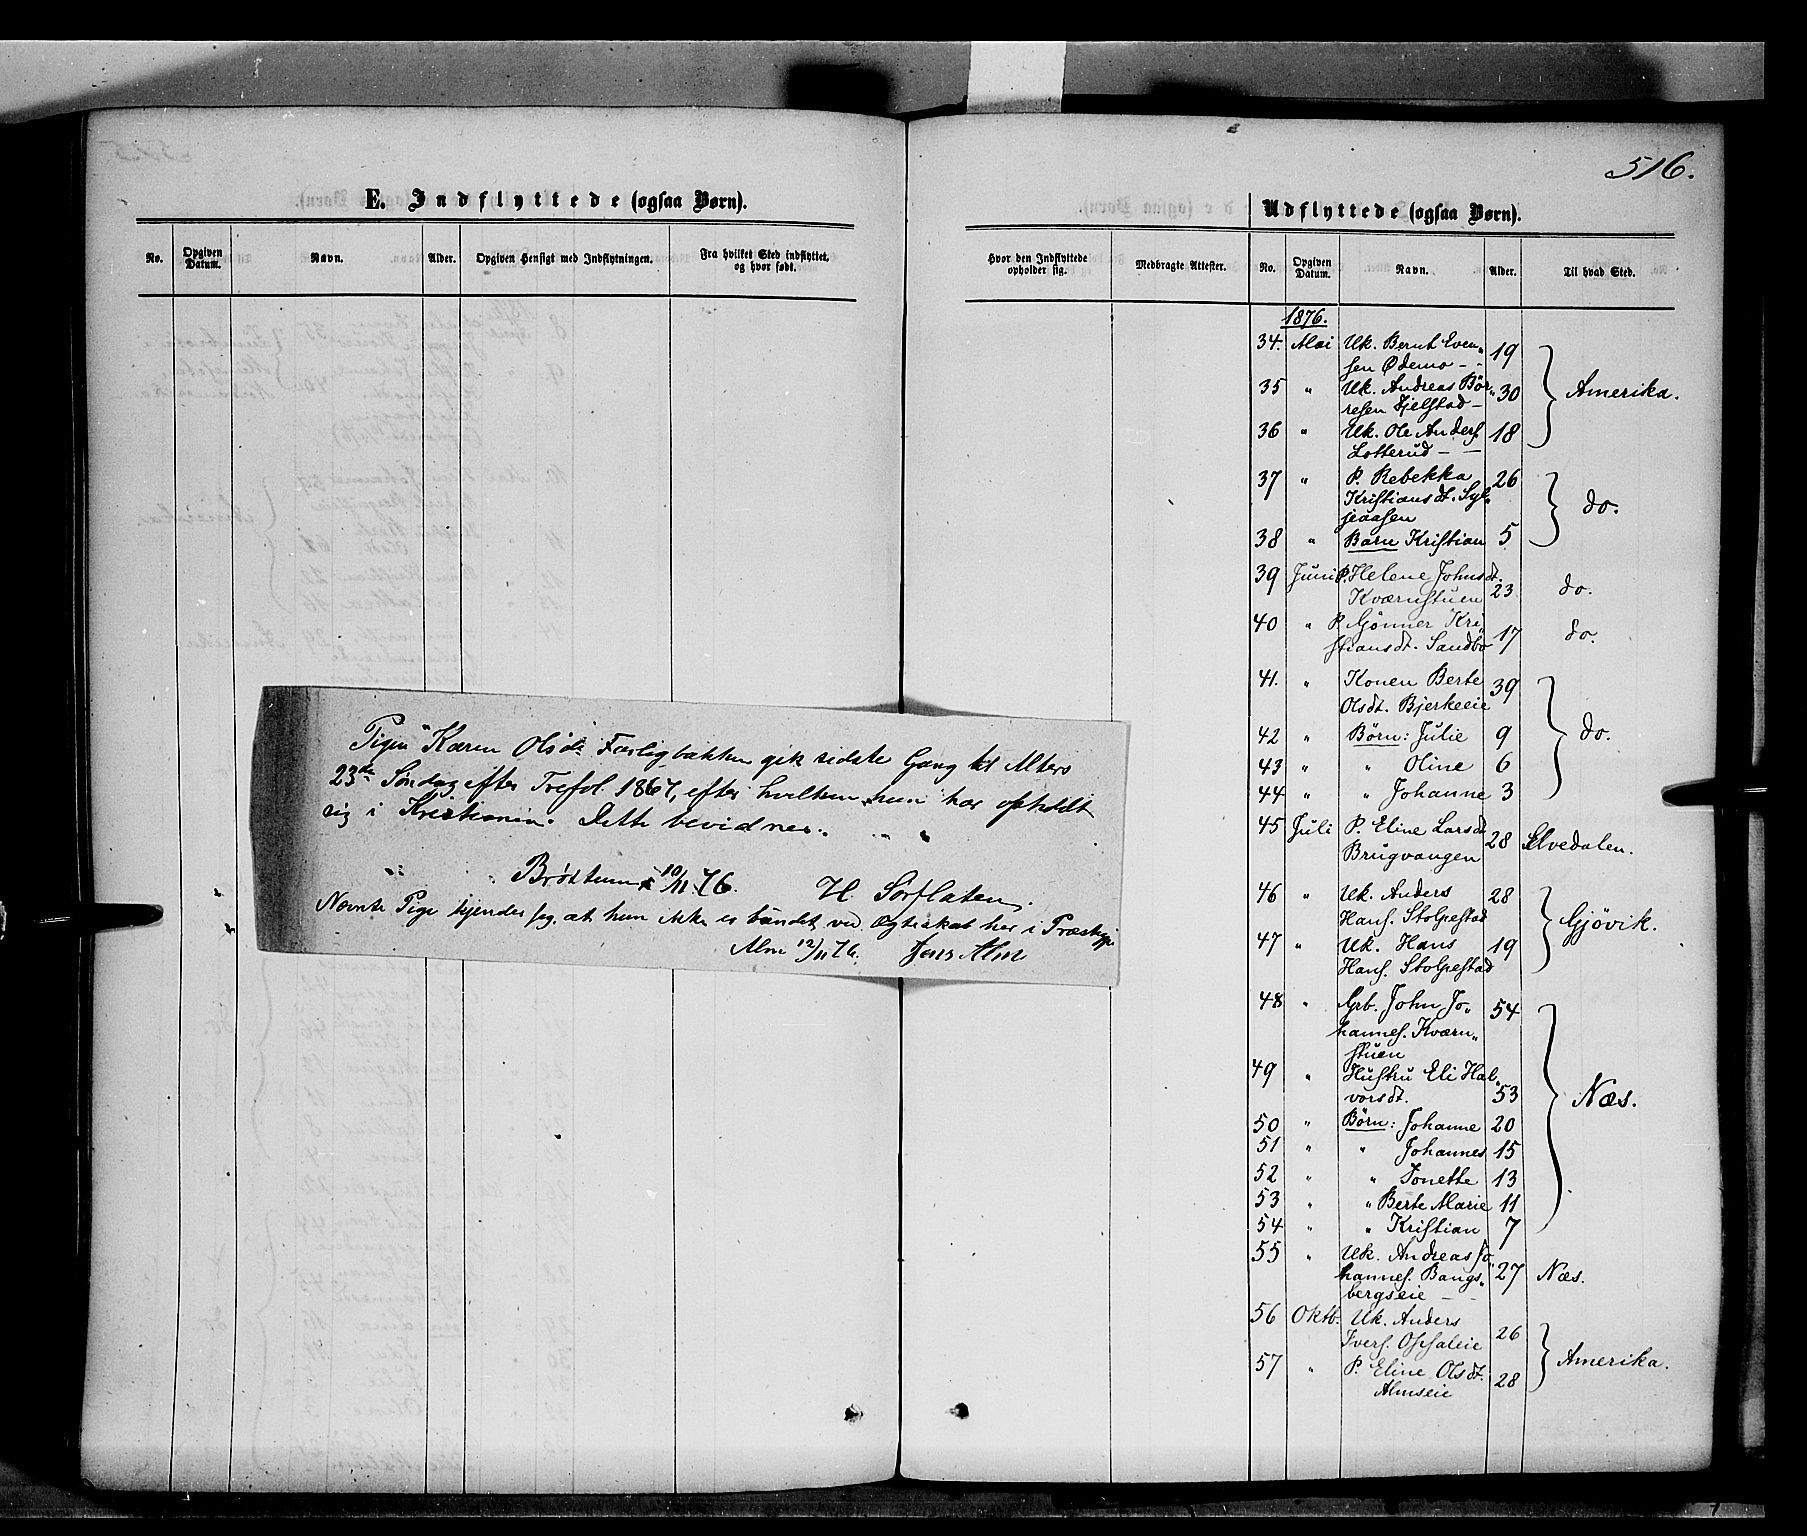 516.
E. Indflyttede (ogsaa Børn).
No. Opgiven Datum. Navn. Alder. Opgiven Hensigt med Indflytningen. Fra hvilket Sted indflyttet, og hvor født.
Pigen Karen Olsdr Færligbakken gik sidste Gang til Alters
23de Søndag efter Trefol. 1867, efter hvilken hun har opholdt
sig i Kristiania. Dette bevidnes.
Brøttum 10/11 76. H. Sørflaten.
Nævnte Pige kjender jeg, at hun ikke er bundet ved Ægteskab her i Præstegj
Alm 12/11 76. Jens Alm
Udflyttede (ogsaa Børn).
Hvor den Indflyttede opholder sig. Medbragte Attester. No. Opgiven Datum. Navn. Alder. Til hvad Sted.
1876.
34. Mai Uk. Bernt Even„
sen Ødemo - - 19
35 „ Uk. Andreas Bör„ 30 Amerika.
resen Fjelstad -
36 „ Uk. Ole Anders. 18
Lotterud - -
37 „ P. Rebekka 26
Kristiansdt. Syl„ do.
jeaasen
38 „ Börn Kristian 5
39 Juni P. Helene Johnsdt.
Kværnstuen 23 do.
40 „ P. Gönner Kri
stiansdt. Sandbo 17 do.
41. „ Konen Berte 39
Olsdt. Bjerkeeie
42 „ Børn: Julie 9 do.
43 „ „ Oline 6
44 „ „ Johanne 3
45 Juli P. Eline Larsdt. 28 Elvedalen.
Brugvangen
46 „ Uk. Anders 28
Hans. Stolpestad Gjövik.
47 „ Uk. Hans 19
Hans. Stolpestad
48 „ Grb. John Jo„ 54
hannes. Kværn„
stuen
49 „ Hustru Eli Hal„
vorsdt. 53 Næs.
50 „ Børn: Johanne 20
51 „ „ Johannes 15
52 „ „ Jonette 13
53 „ „ Berte Marie 11
54 „ „ Kristian 7
55 „ Uk. Andreas Jo„
hannes. Bangs„ 27 Næs.
bergseie - -
56 Oktb. Uk. Anders
Ivers. Opsaleie 26
57 „ P. Eline Olsdt. 28 Amerika.
Almseie